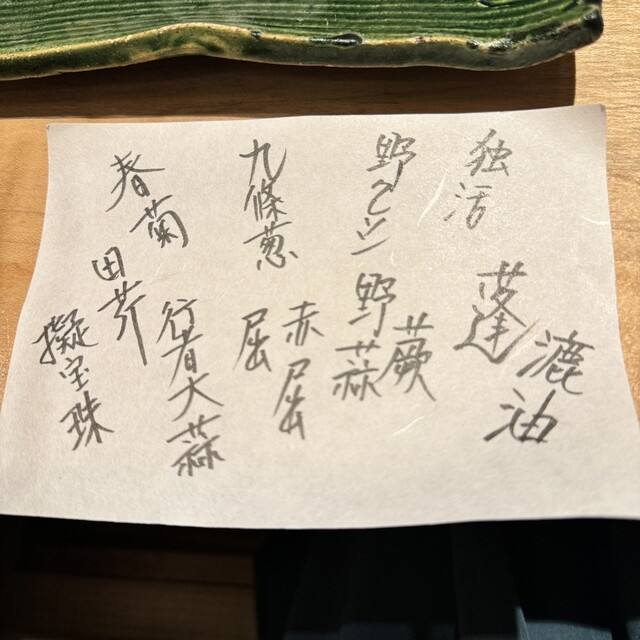 独活
漉油
蓬
野
蕨
野蒜
九條葱
赤屈
屈
春菊
行者大蒜
田芹
擬宝珠